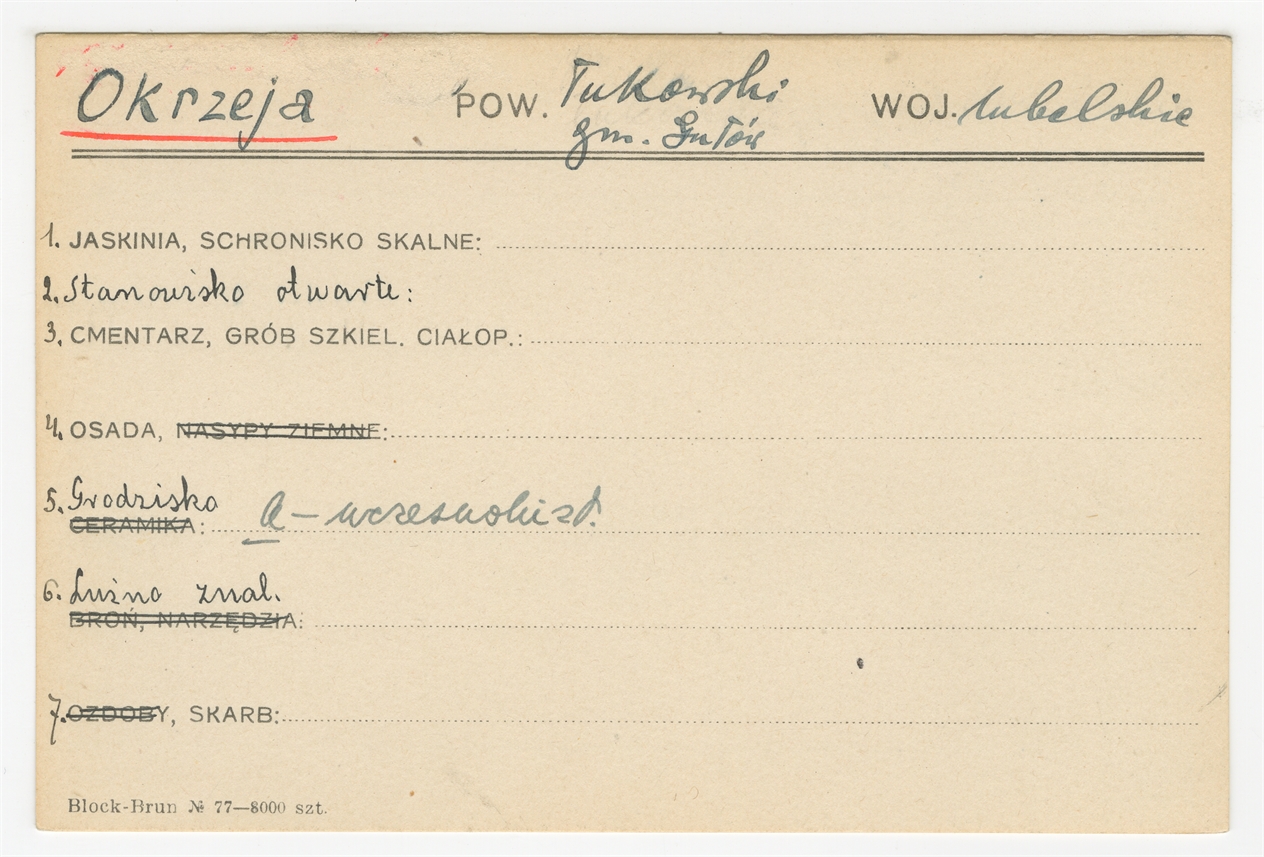 Okrzeja POW. Łukowski WOJ. lubelskie
gm. Gułów
1. JASKINIA, SCHRONISKO SKALNE:
2. Stanowisko otwarte:
3. CMENTARZ, GRÓB SZKIEL. CIAŁOP.:
4. OSADA, NASYPY ZIEMNE:
5. Grodzisko
CERAMIKA: a - wczesnohist.
6. Luźno znal.
BROŃ, NARZĘDZIA:
7. OZDOBY, SKARB:
Block-Brun № 77—8000 szt.